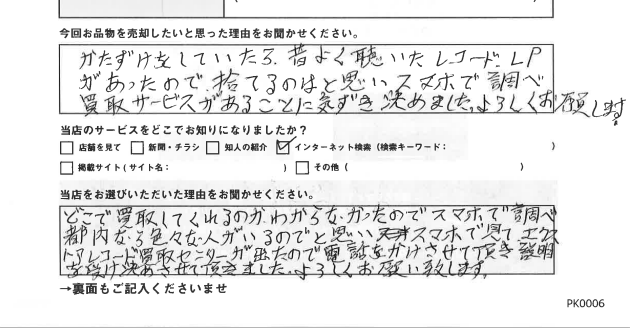 今回お品物を売却したいと思った理由をお聞かせください。
かたずけをしていたら、昔よく聴いたレコード、LP
があったので、捨てるのはと思いスマホで調べ
買取サービスがあることに気ずき決めました。よろしくお願します。
当店のサービスをどこでお知りになりましたか?
店舗を見て 新聞・チラシ 知人の紹介 インターネット検索(検索キーワード: )
掲載サイト(サイト名: ) その他( )
当店をお選びいただいた理由をお聞かせください。
どこで買取してくれるのかわからなかったのでスマホで調べ
都内なら色々な人がいるのでと思い スマホで見て、エクス
トラレコード買取センターが出たので電話をかけさせて頂き説明
を受け決めさせて頂きました。よろしくお願い致します。
→裏面もご記入くださいませ
PK0006